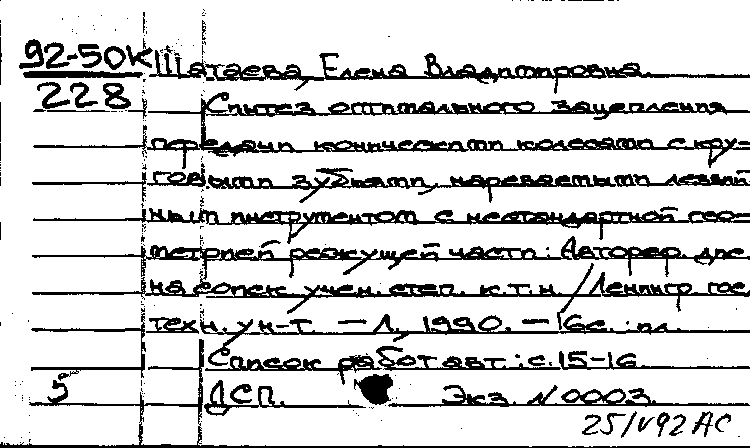 92-50К Шатаева, Елена Владимировна.
228 Синтез оптимального зацепления
передачи коническими колесами с кру-
говыми зубьями, нарезаемыми лезвий
ным инструментом с нестандартной гео-
метрией режущей части: Автореф. дис.
на соиск. учен. степ. к.т.н. / Ленингр. гос.
техн. ун-т. — Л., 1990. — 16с.: ил.
Список работ авт.: с. 15-16.
5 ДСП. Экз. N 0003.
25/V92 АС